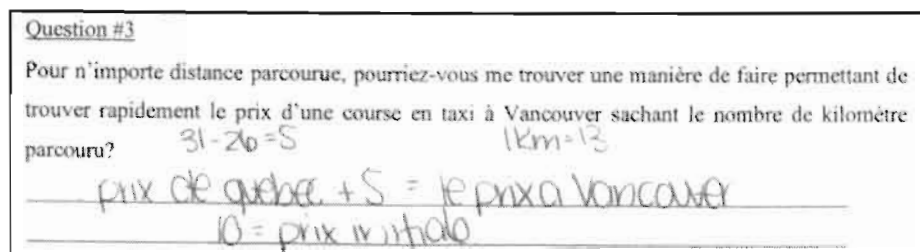 Question #3
Pour n'importe distance parcourue, pourriez-vous me trouver une manière de faire permettant de
trouver rapidement le prix d'une course en taxi à Vancouver sachant le nombre de kilomètre
parcouru? 31-26=5 1km=13
prix de quebec +5 = le prix a Vancouver
10 = prix initiale